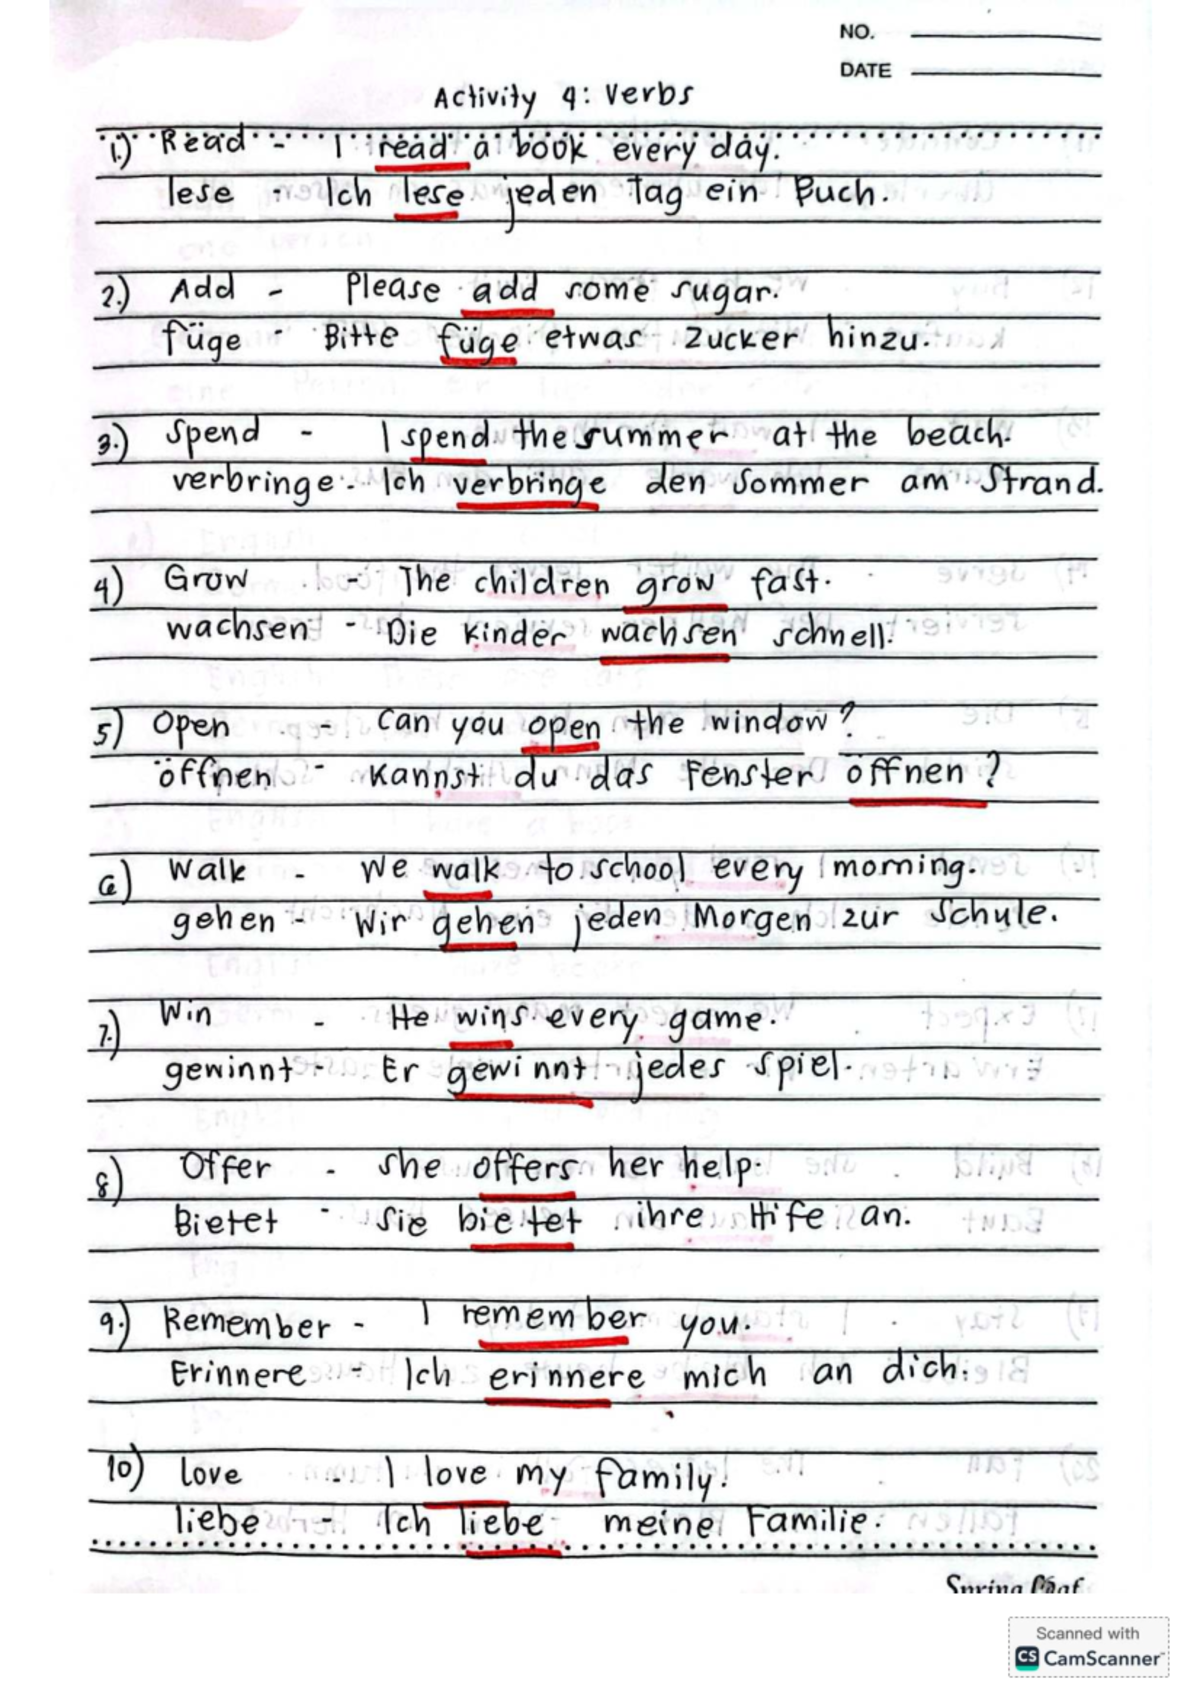 NO.
DATE
Activity 4: Verbs
1.) Read - I read a book every day.
lese - Ich lese jeden Tag ein Buch.
2.) Add - Please add some sugar.
füge - Bitte füge etwas Zucker hinzu.
3.) Spend - I spend the summer at the beach.
verbringe - Ich verbringe den Sommer am Strand.
4) Grow - The children grow fast.
wachsen - Die Kinder wachsen schnell.
5) Open - Can you open the window?
öffnen - Kannst du das Fenster öffnen?
6) Walk - We walk to school every morning.
gehen - Wir gehen jeden Morgen zur Schule.
7.) Win - He wins every game.
gewinnt - Er gewinnt jedes Spiel.
8) Offer - She offers her help.
Bietet - Sie bietet ihre Hife an.
9.) Remember - I remember you.
Erinnere - Ich erinnere mich an dich.
10) love - I love my family.
liebe - Ich liebe meine Familie.
Spring
Scanned with
CS CamScanner